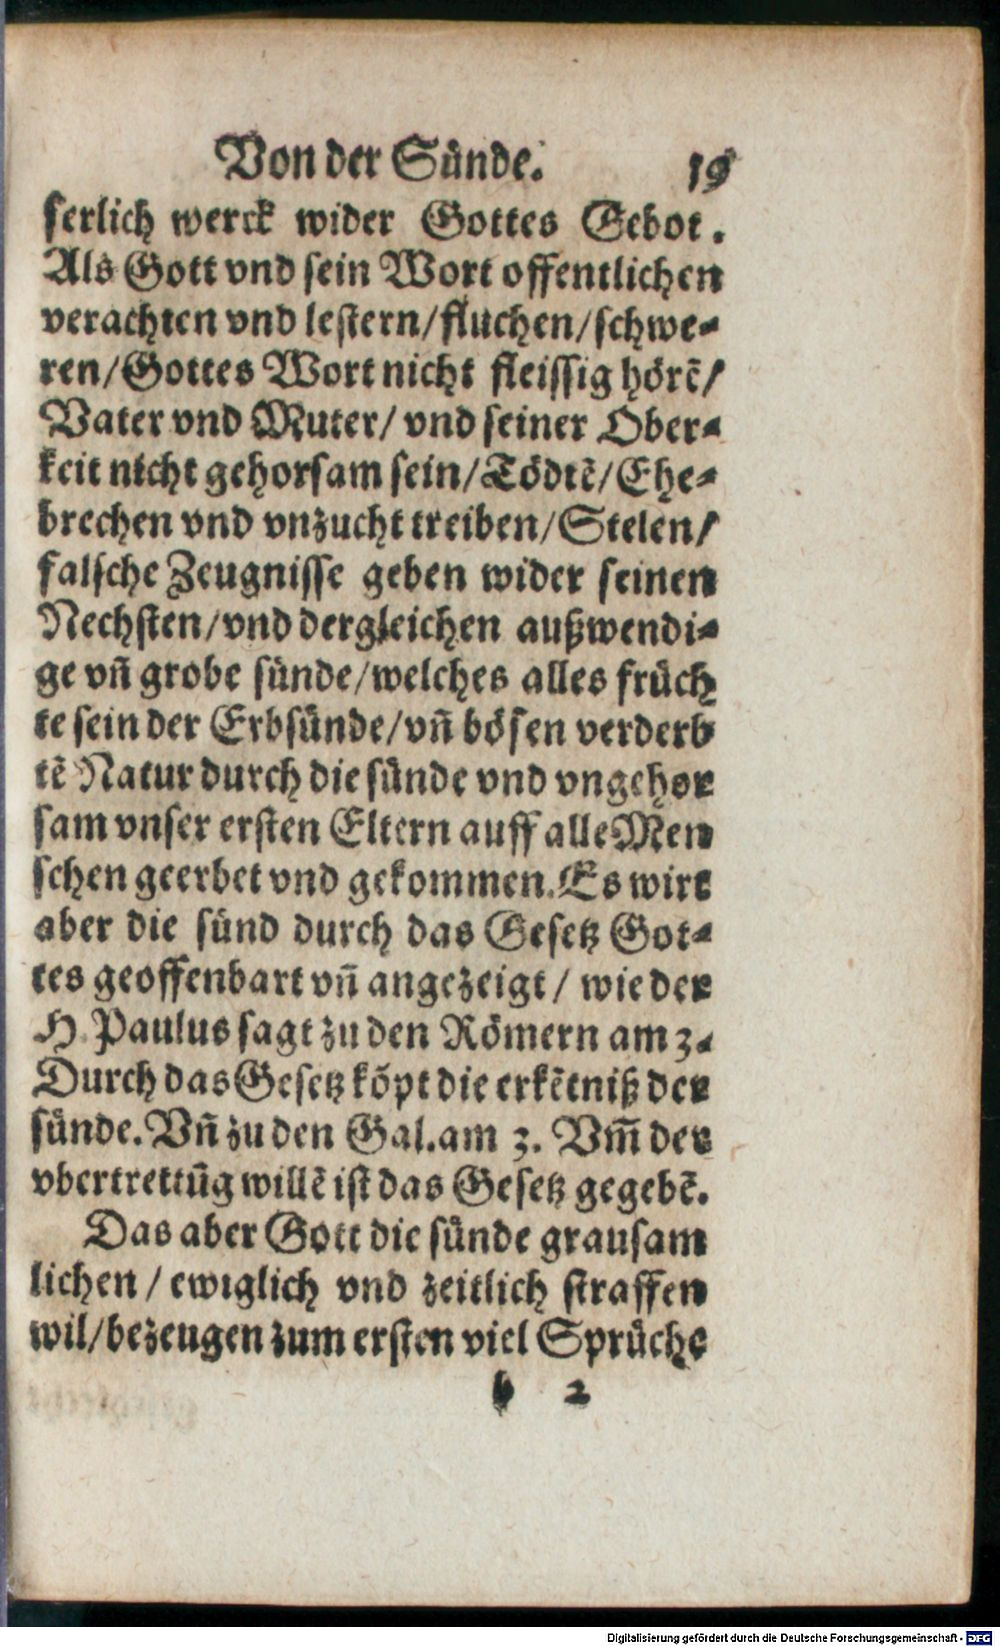 Von der Sünde. 19
serlich werck wider Gottes Gebot.
Als Gott vnd sein Wort offentlichen
verachten vnd lestern/fluchen/schwe-
ren/Gottes Wort nicht fleissig hörē/
Vater vnd Muter/ vnd seiner Ober-
keit nicht gehorsam sein/Tödtē/Ehe-
brechen vnd vnzucht treiben/Stelen/
falsche Zeugnisse geben wider seinen
Nechsten/vnd dergleichen außwendi-
ge vñ grobe sünde/welches alles früch
te sein der Erbsünde/vñ bösen verderb
tē Natur durch die sünde vnd vngehor
sam vnser ersten Eltern auff alle Men
schen geerbet vnd gekommen. Es wirt
aber die sünd durch das Gesetz Got-
tes geoffenbart vñ angezeigt / wie der
H. Paulus sagt zu den Römern am 3.
Durch das Gesetz kōpt die erkētniß der
sünde. Vñ zu den Gal. am 3. Vm̄ der
vbertrettūg willē ist das Gesetz gegebē.
Das aber Gott die sünde grausam
lichen / ewiglich vnd zeitlich straffen
wil/bezeugen zum ersten viel Sprüche
b 2
Digitalisierung gefördert durch die Deutsche Forschungsgemeinschaft - DFG